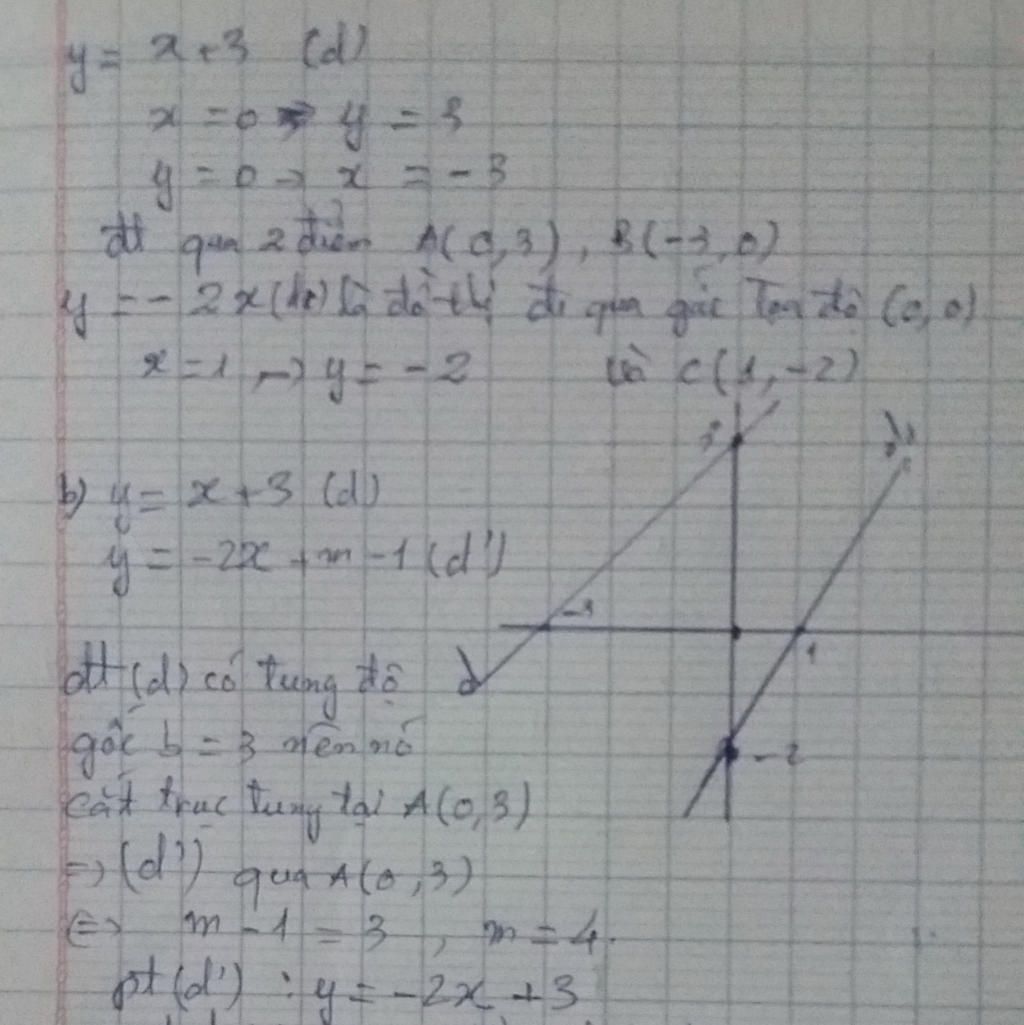 y = x + 3 (d)
x = 0 → y = 3
y = 0 → x = -3
đt qua 2 điểm A(0,3), B(-3,0)
y = - 2x là đồ thị đi qua gốc tọa độ (0,0)
x = 1 → y = -2 và C(1,-2)
b) y = x + 3 (d)
y = -2x + m - 1 (d')
đt (d) có tung độ
gốc b = 3 nên nó
cắt trục tung tại A(0,3)
=> (d') qua A(0,3)
<=> m - 1 = 3, m = 4.
pt (d') : y = -2x + 3
3
-3
1
d
-2